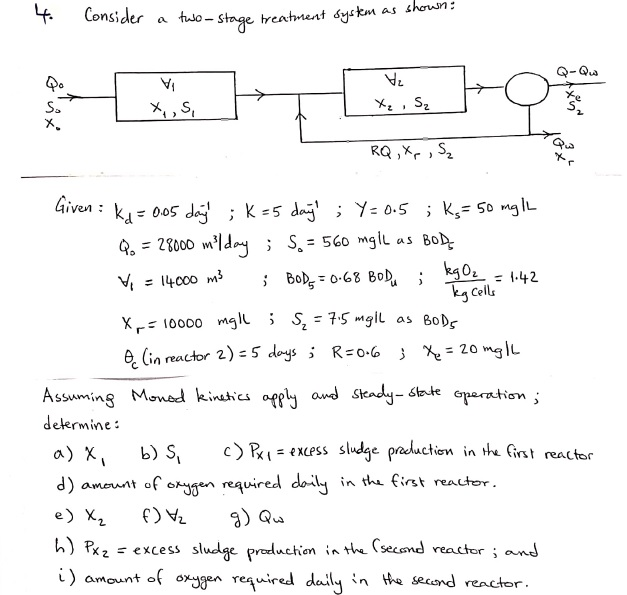 4. Consider a two-stage treatment system as shown:
Q₀
S₀
X₀
∀₁
X₁, S₁
∀₂
X₂, S₂
Q-Qω
Xe
S₂
RQ, Xr, S₂
Qω
Xr
Given: Kd = 0.05 day⁻¹ ; K = 5 day⁻¹ ; Y = 0.5 ; Ks = 50 mg/L
Q₀ = 28000 m³/day ; S₀ = 560 mg/L as BOD₅
∀₁ = 14000 m³ ; BOD₅ = 0.68 BODu ; kg O₂ / kg cells = 1.42
Xr = 10000 mg/L ; S₂ = 7.5 mg/L as BOD₅
θc (in reactor 2) = 5 days ; R = 0.6 ; Xe = 20 mg/L
Assuming Monod kinetics apply and steady-state operation ;
determine:
a) X₁ b) S₁ c) Px₁ = excess sludge production in the first reactor
d) amount of oxygen required daily in the first reactor.
e) X₂ f) ∀₂ g) Qω
h) Px₂ = excess sludge production in the (second reactor ; and
i) amount of oxygen required daily in the second reactor.